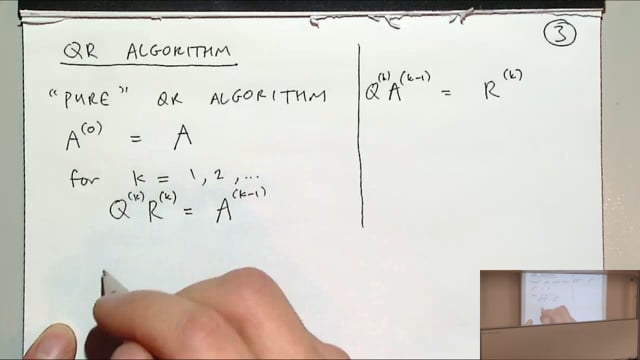 QR ALGORITHM
"PURE" QR ALGORITHM
A^(0) = A
for k = 1, 2, ...
Q^(k) R^(k) = A^(k-1)
Q^(k) A^(k-1) = R^(k)
3